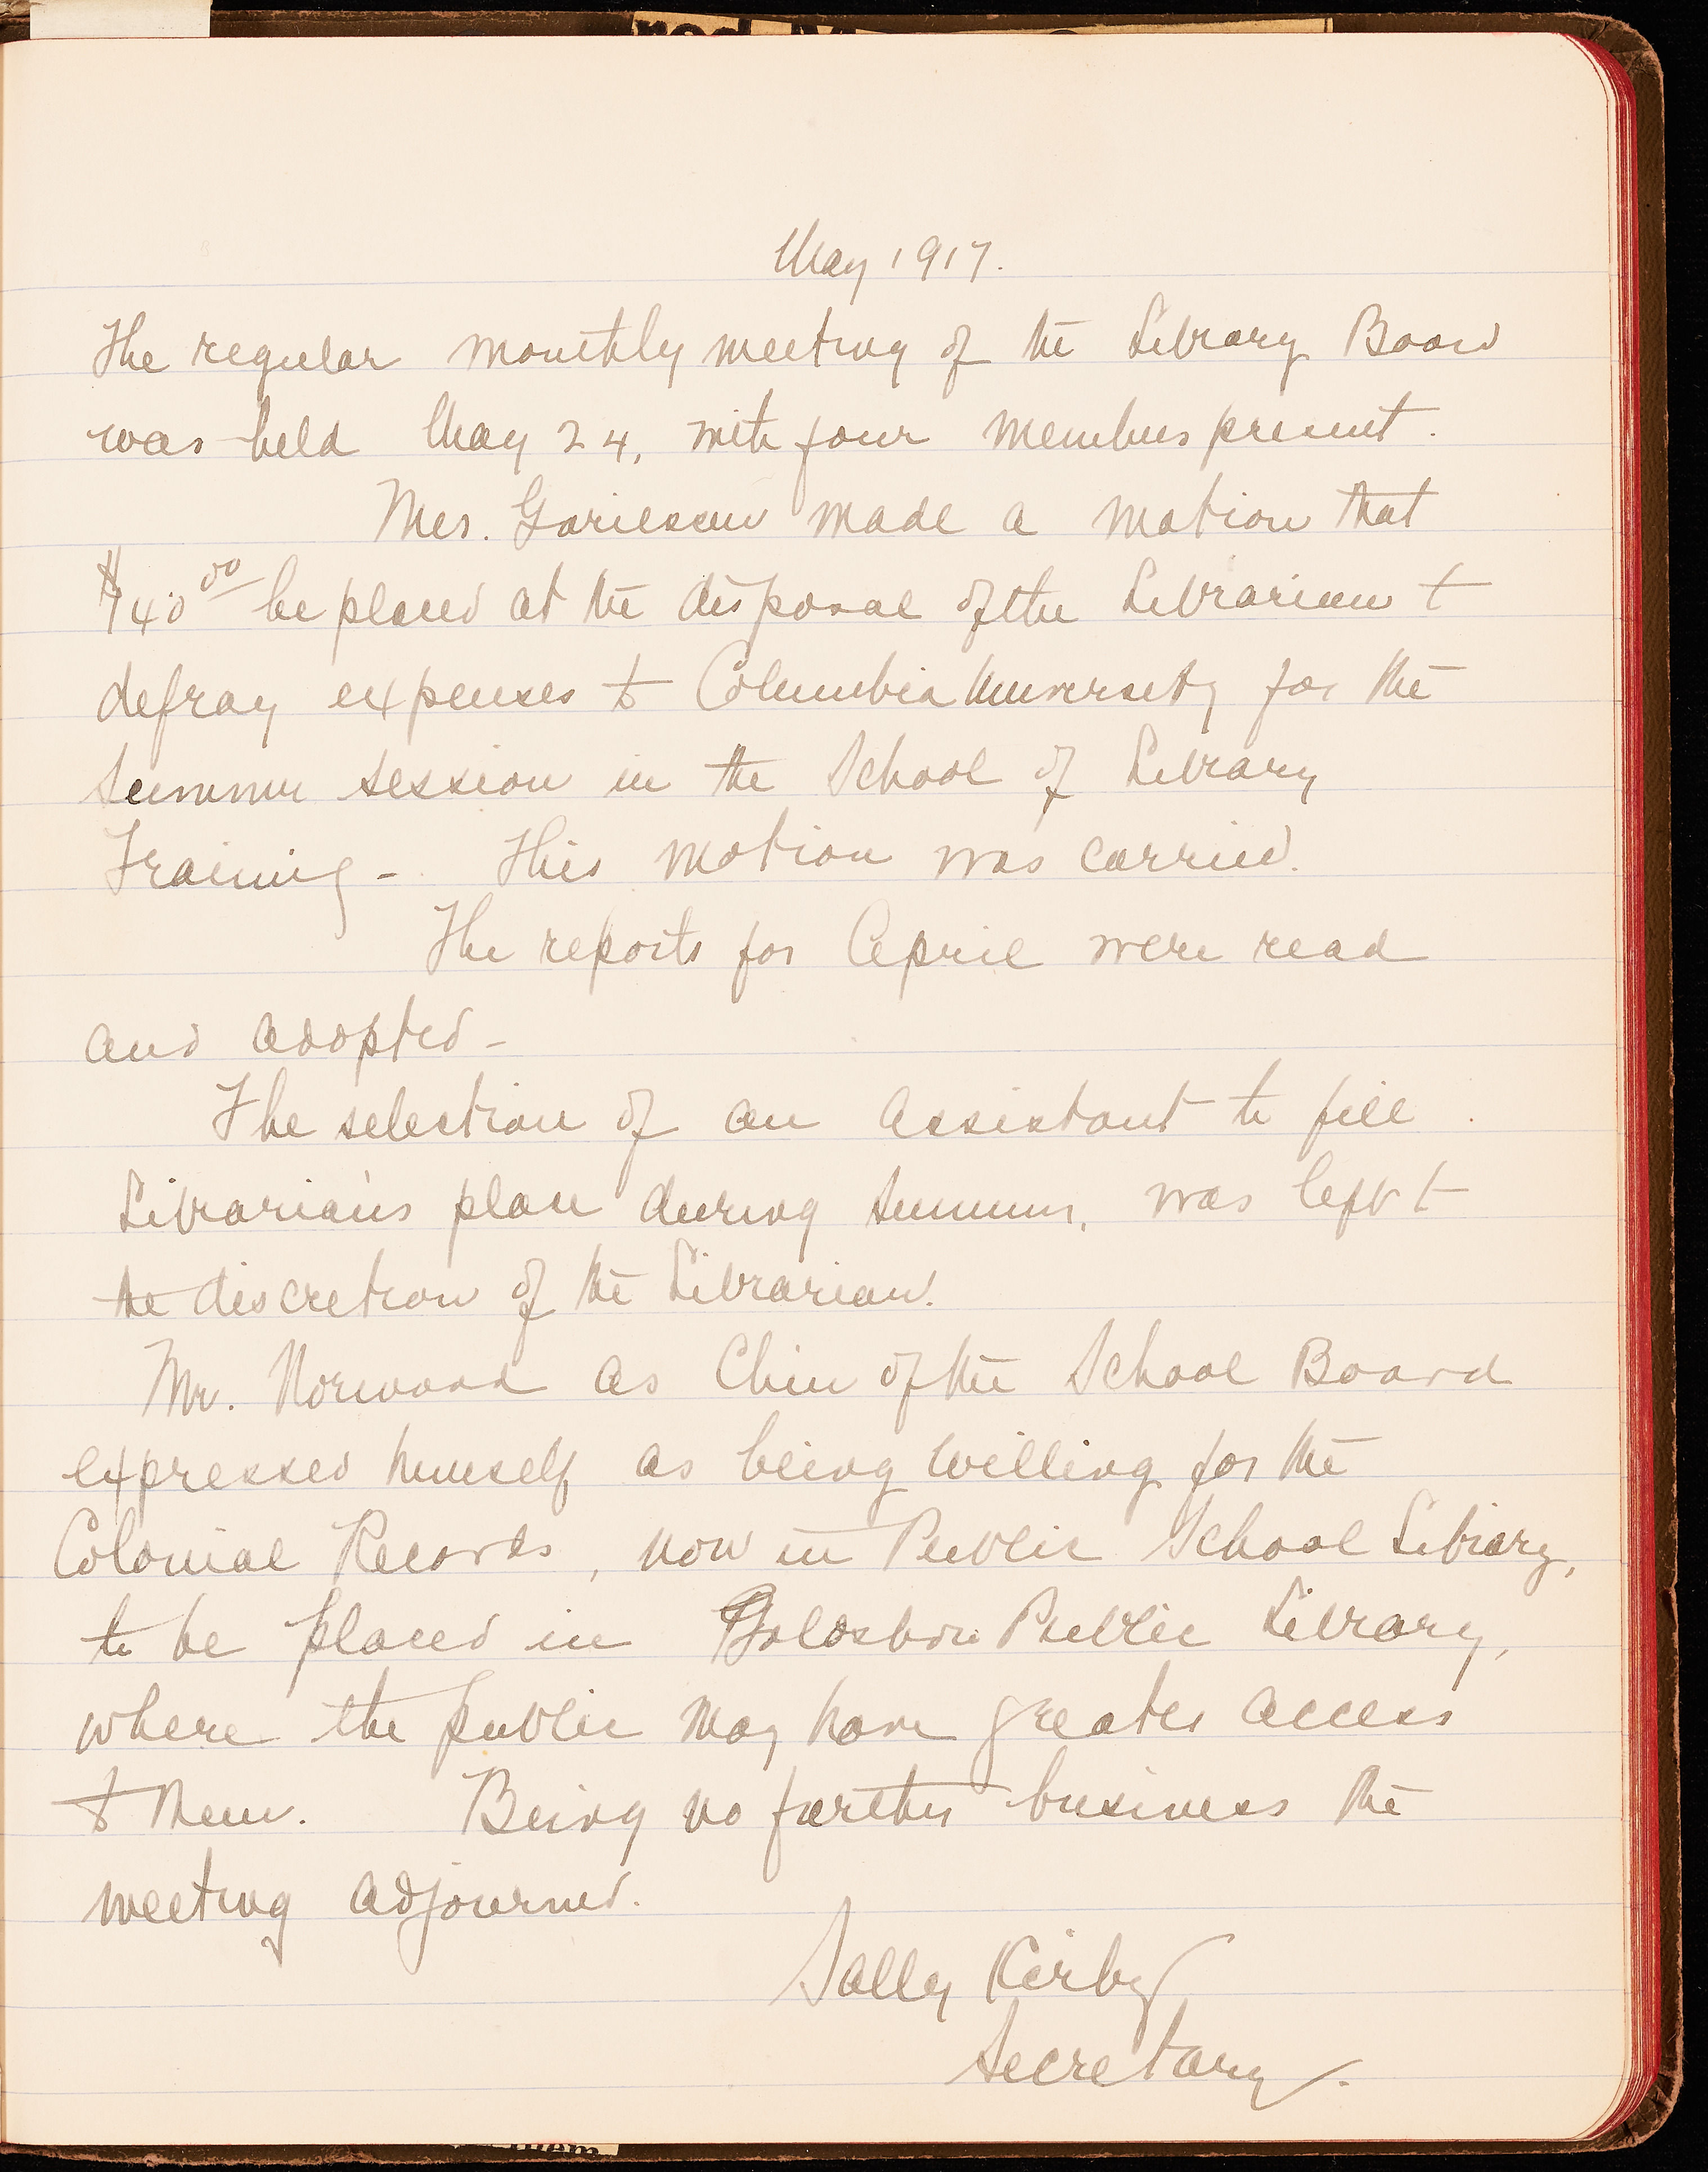 May 1917.
The regular monthly meeting of the Library Board
was held May 24, with four members present.
Mrs. made a motion that
$40 00 be placed at the disposal of the Librarian to
defray expenses to Columbia University for the
Summer session in the School of Library
Training - This motion was carried.
The reports for April were read
and adopted -
The selection of an assistant to fill
Librarian's place during summer, was left to
the discretion of the Librarian.
Mr. Norwood as Chm of the School Board
expressed himself as being willing for the
Colonial Records, now in Public School Library,
to be placed in Goldsboro Public Library,
where the public may have greater access
to them. Being no further business the
meeting adjourned.
Sally Kirby
Secretary.